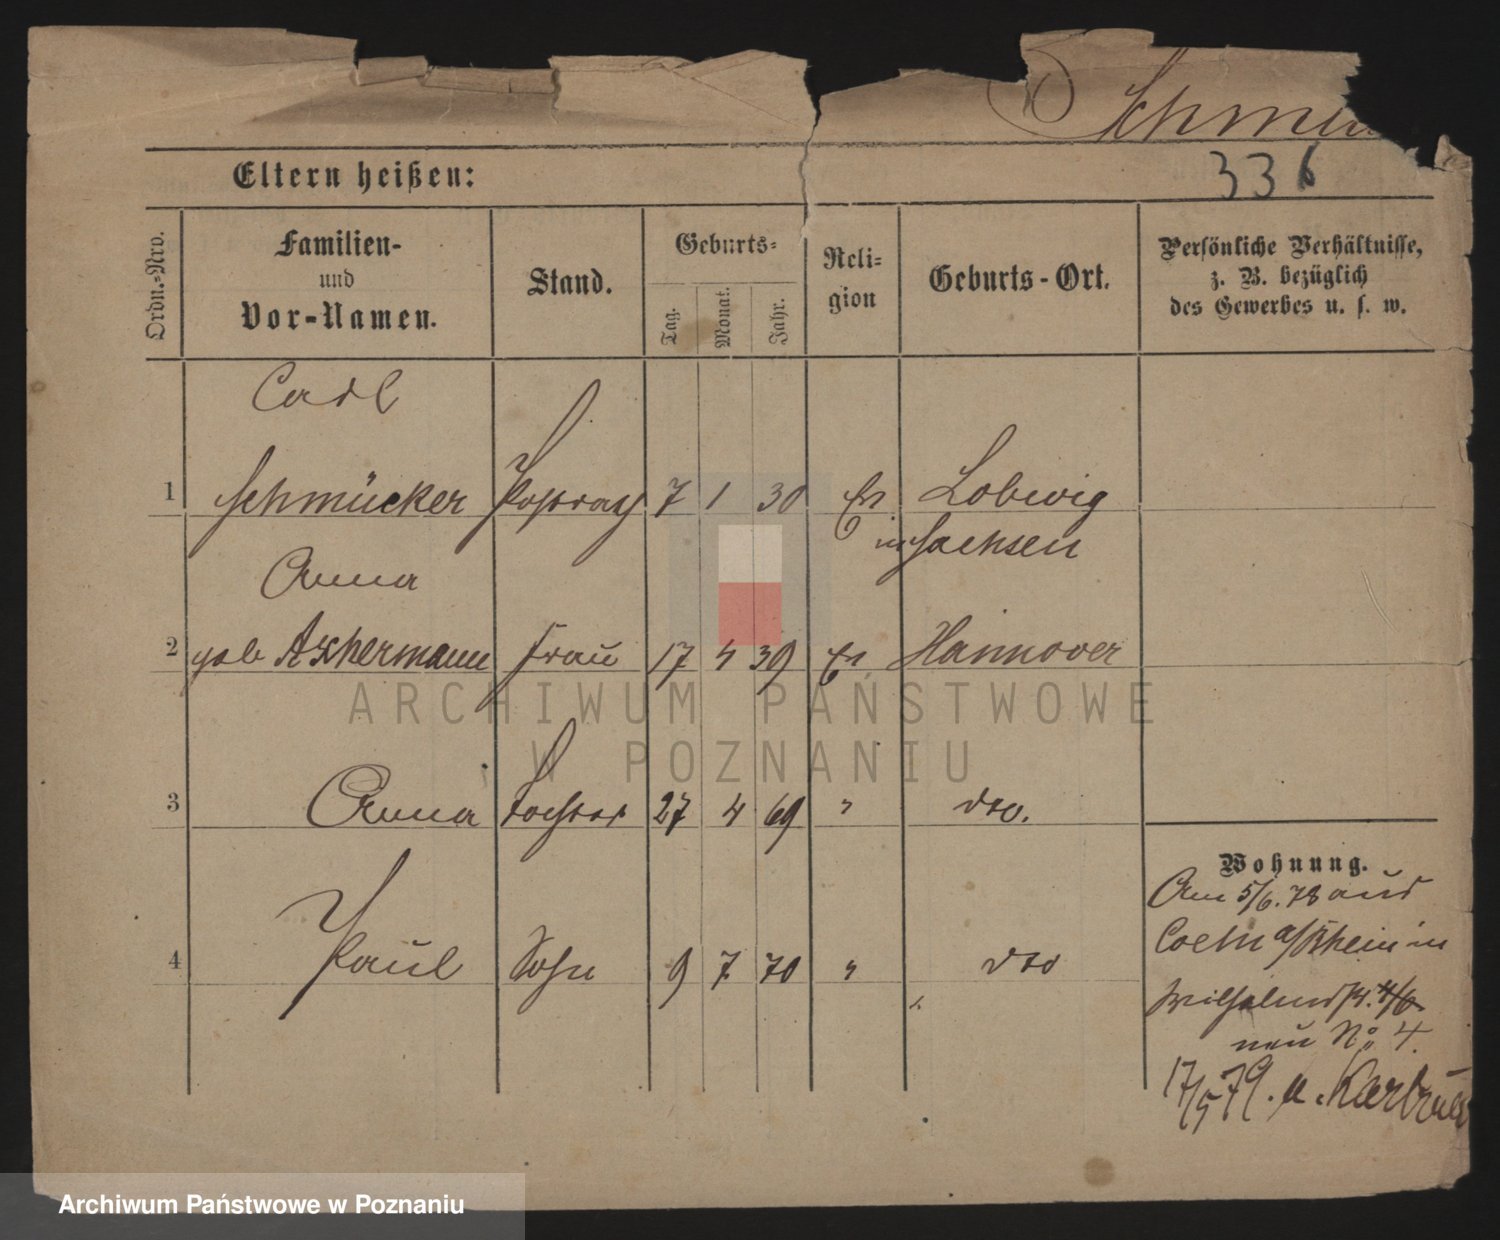 Schmü
336
Eltern heißen:
Ordn.-Nro.
Familien-
und
Vor-Namen.
Stand.
Geburts-
Tag.
Monat.
Jahr.
Reli-
gion
Geburts-Ort.
Persönliche Verhältnisse,
z. B. bezüglich
des Gewerbes u. s. w.
Carl
1 Schmücker Postrath 7 1 30 Ev Lobwig
in Sachsen
Anna
2 geb Frau 17 4 39 Ev Hannover
3 Anna Tochter 27 4 69 " dto.
4 Paul Sohn 9 7 70 " dto
Wohnung.
Am 5/6. 78 aus
Coeln a/Rhein in
Wilhelmstr. 4/6
neu No 4.
17/5 79. n.
ARCHIWUM PAŃSTWOWE
W POZNANIU
Archiwum Państwowe w Poznaniu